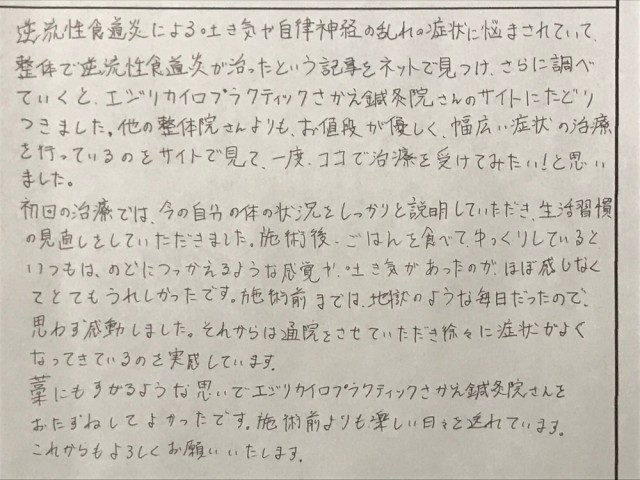 逆流性食道炎による吐き気や自律神経の乱れの症状に悩まされていて、
整体で逆流性食道炎が治ったという記事をネットで見つけ、さらに調べ
ていくと、エジリカイロプラクティックさかえ鍼灸院さんのサイトにたどり
つきました。他の整体院さんよりも、お値段が優しく、幅広い症状の治療
を行っているのをサイトで見て、一度、ココで治療を受けてみたい!と思い
ました。
初回の治療では、今の自分の体の状況をしっかりと説明していただき、生活習慣
の見直しをしていただきました。施術後、ごはんを食べて、ゆっくりしていると、
いつもは、のどにつっかえるような感覚や、吐き気があったのが、ほぼ感じなく
てとてもうれしかったです。施術前までは、地獄のような毎日だったので、
思わず感動しました。それからは通院をさせていただき徐々に症状がよく
なってきているのを実感しています。
藁にもすがるような思いでエジリカイロプラクティックさかえ鍼灸院さんを
おたずねしてよかったです。施術前よりも楽しい日々を送れています。
これからもよろしくお願いいたします。